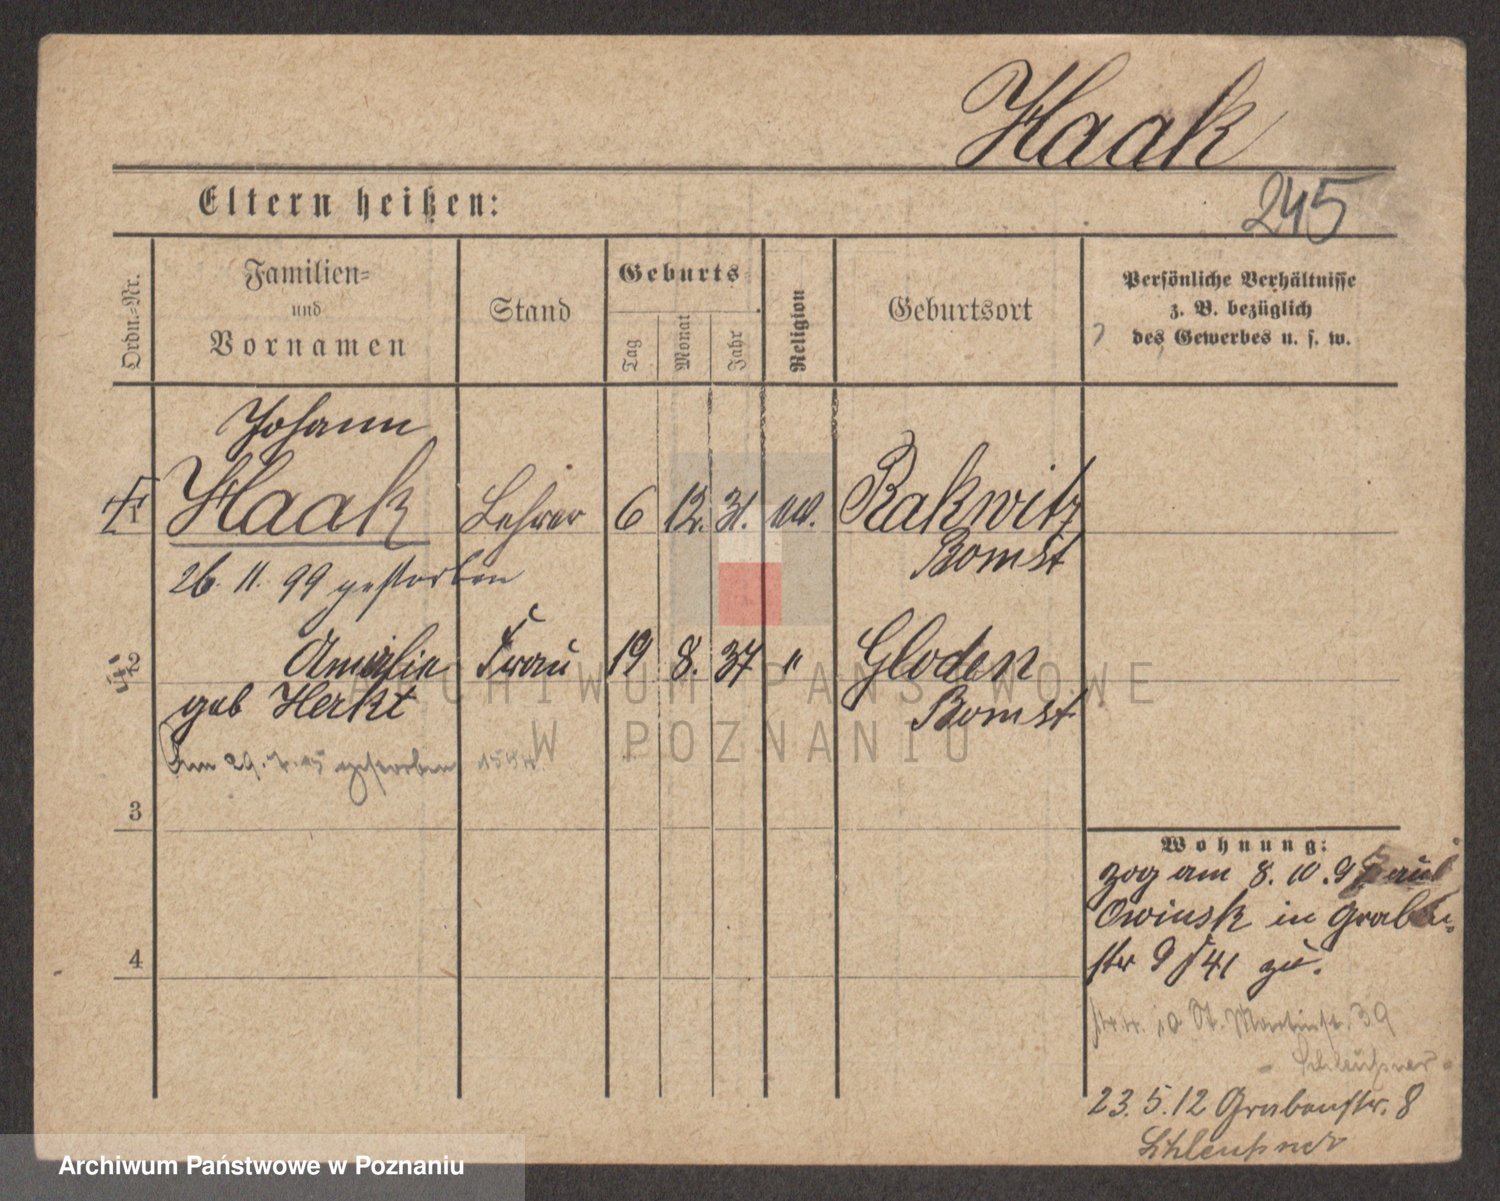 Haak
245
Eltern heißen:
Ordn.-Nr.
Familien-
und
Vornamen
Stand
Geburts
Tag
Monat
Jahr
Religion
Geburtsort
Persönliche Verhältnisse
z. B. bezüglich
des Gewerbes u. s. w.
Johann
Haak Lehrer 6 12. 31. Rakwitz
Bomst
26. 11. 99 gestorben
2 Amalie Frau 19 8. 37 " Gloden
geb Herkt Bomst
ARCHIWUM PAŃSTWOWE
W POZNANIU
Am 29. 7. 15 gestorben
3
Wohnung:
zog am 8. 10. 97 aus
Owinsk in Graben
str 9 zu.
4
St. Martinstr. 39
Schleußner
23. 5. 12 Grabenstr. 8
Schleußner
Archiwum Państwowe w Poznaniu